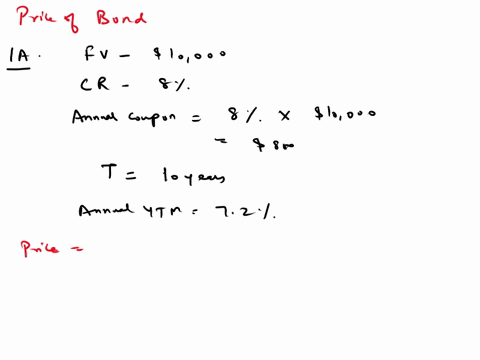 Price of Bond
1A. FV - $10,000
CR - 8%.
Annual coupon = 8%. × $10,000
= $800
T = 10 years
Annual YTM = 7.2%.
Price =